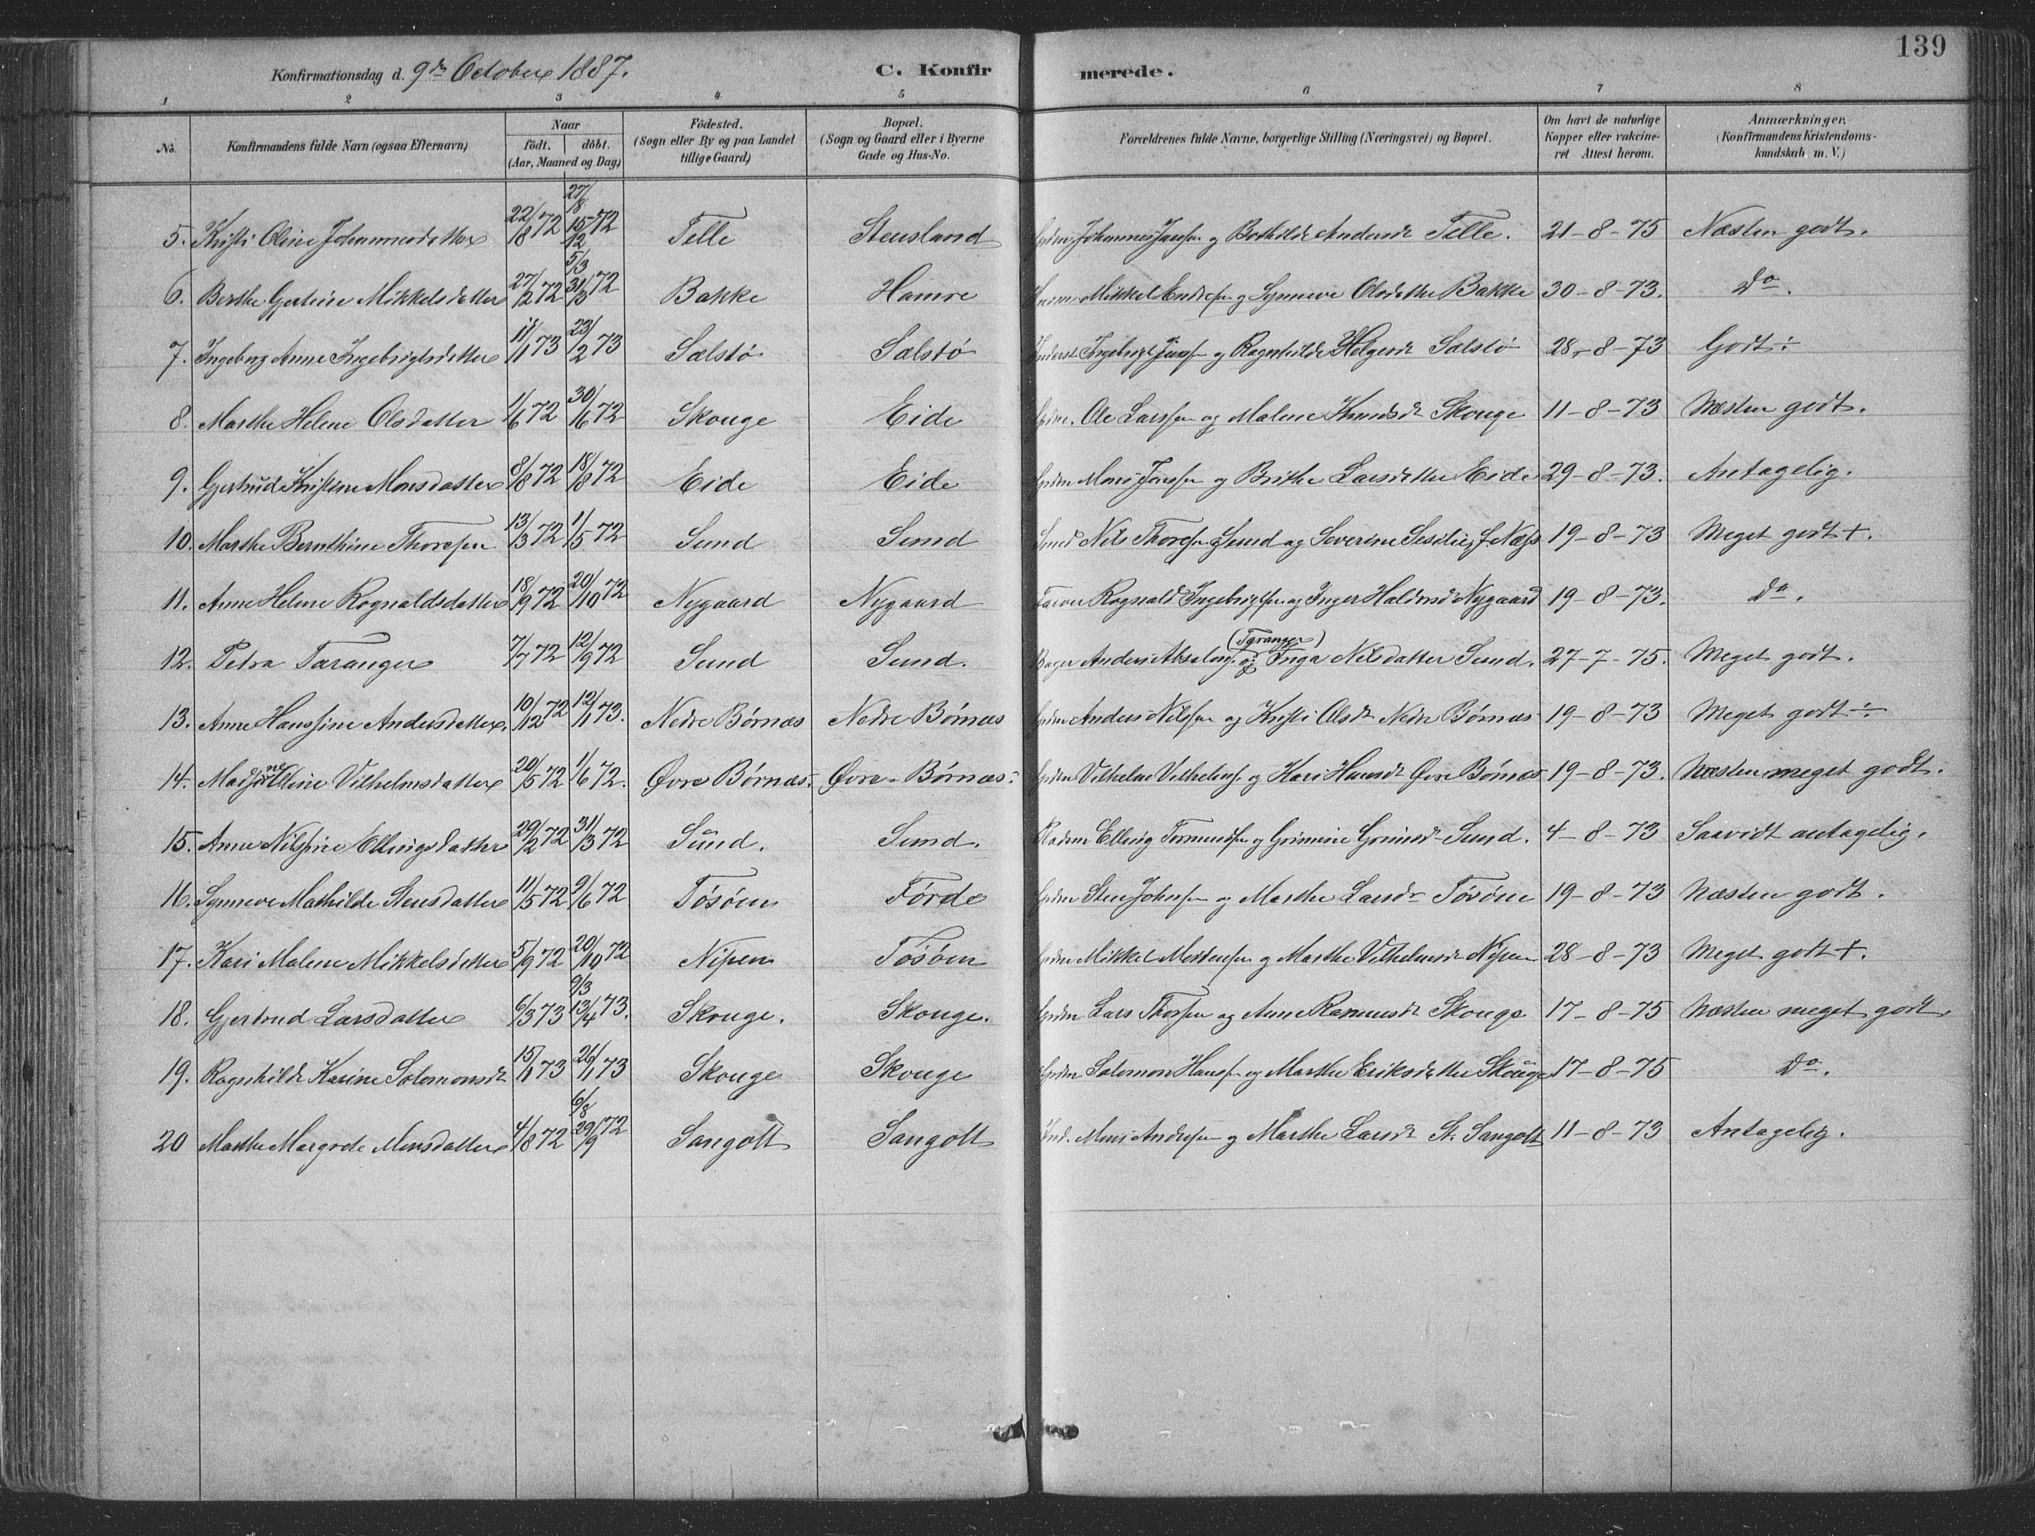 139
Konfirmationsdag d. 9de October 1887. C. Konfir merede.
1 2 3 4 5 6 7 8
No. Konfirmandens fulde Navn (ogsaa Efternavn) Naar født. døbt. (Aar, Maaned og Dag) Fødested. (Sogn eller By og paa Landet tillige Gaard) Bopæl. (Sogn og Gaard eller i Byerne Gade og Hus-No. Forældrenes fulde Navne, borgerlige Stilling (Næringsvei) og Bopæl. Om havt de naturlige Kopper eller vakcineret Attest herom. Anmærkninger. (Konfirmandens Kristendomskundskab m. V.)
5. Kristi Oline Johannesdatter 22/8 72 27/8 15/12 72 Telle Stensland Johannes Jansen og Bothilde Andersdr Telle. 21-8-75 Næsten godt.
6. Berthe Gjertine Mikkelsdatter 27/2 72 5/3 31/3 72 Bakke Hamre Husm. Mikkel Andersen og Synneve Olsdatter Bakke 30-8-73. Do.
7. Ingeborg Anne Ingebrigtsdatter 11/1 73 23/2 73 Salstø Salstø Inderst Ingebrigt Jansen og Ragnhilde Helgesdr Salstø 28-8-73 Godt ÷
8. Marthe Helene Olsdatter 1/6 72 30/6 72 Skouge Eide Grdm. Ole Larssen og Malene Knudsdr Skouge 11-8-73 Næsten godt.
9. Gjertrud Kristine Monsdatter 8/8 72 18/8 72 Eide Eide Grdm Mons Jansen og Brithe Larsdatter Eide 29-8-73. Antagelig.
10. Marthe Bernthine Thoresen 13/3 72 1/5 72 Sund Sund Nils Thoresen Sund og Severine Sesilie f. Næss 19-8-73 Meget godt +.
11. Anne Helene Rognaldsdatter 18/9 72 20/10 72 Nygaard Nygaard Rognald Ingebrigtsen og Inger Haldorsdr Nygaard 19-8-73. Do.
12. Petra Taranger 7/7 72 12/9 72 Sund Sund. Bager Anders Absalons. (Taranger) og Inga Nilsdatter Sund. 27-7-75. Meget godt.
13. Anne Hanssine Andersdatter. 10/12 72 12/1 73. Nedre Børnæs Nedre Børnæs Grdm Anders Nilssen og Kristi Olsdr Nedre Børnæs 19-8-73 Meget godt ÷.
14. Vilhelmsdatter 20/5 72 1/6 72. Øvre Børnæs. Øvre Børnæs. Grdm Vilhelm Vilhelmsen og Kari Hansdr Øvre Børnæs 19-8-73. Næsten meget godt.
15. Anne Nilsine Ellingsdatter 29/2 72 31/3 72 Sund. Sund. Elling Tormundsen og Grimine Grimsdr Sund. 4-8-73 Saavidt antagelig.
16. Synneve Mathilde Stensdatter 11/5 72 9/6 72 Tøsøen Førde Grdm Sten Johnsen og Marthe Larsdr Tøsøen 19-8-73 Næsten godt.
17. Kari Malene Mikkelsdatter 5/9 72 20/10 72 Nipen Tøsøen Grdm Mikkel Mortensen og Marthe Vilhelmsdr Nipen 28-8-73 Meget godt +.
18. Gjertrud Larsdatter 6/3 73 9/3 13/4 73. Skouge. Skouge. Grdm Lars Thorsen og Anne Rasmusdr Skouge 17-8-75 Næsten meget godt.
19. Ragnhilde Karine Salomonsdr 15/1 73 26/1 73 Skouge Skouge Grdm Salomon Hansen og Marthe Eriksdatter Skouge 17-8-75 Do.
20 Marthe Margrete Monsdatter 4/8 72 6/8 29/9 72 Sangolt Sangolt Ind. Mons Andersen og Marthe Larsdr St. Sangolt 11-8-73 Antagelig.